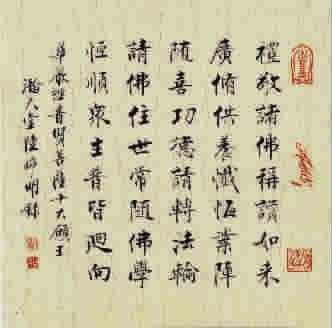 禮敬諸佛稱讚如來
廣脩供養懺悔業障
随喜功德請轉法輪
請佛住世常随佛學
恒順衆生普皆迴向
華嚴經普賢菩薩十大願王